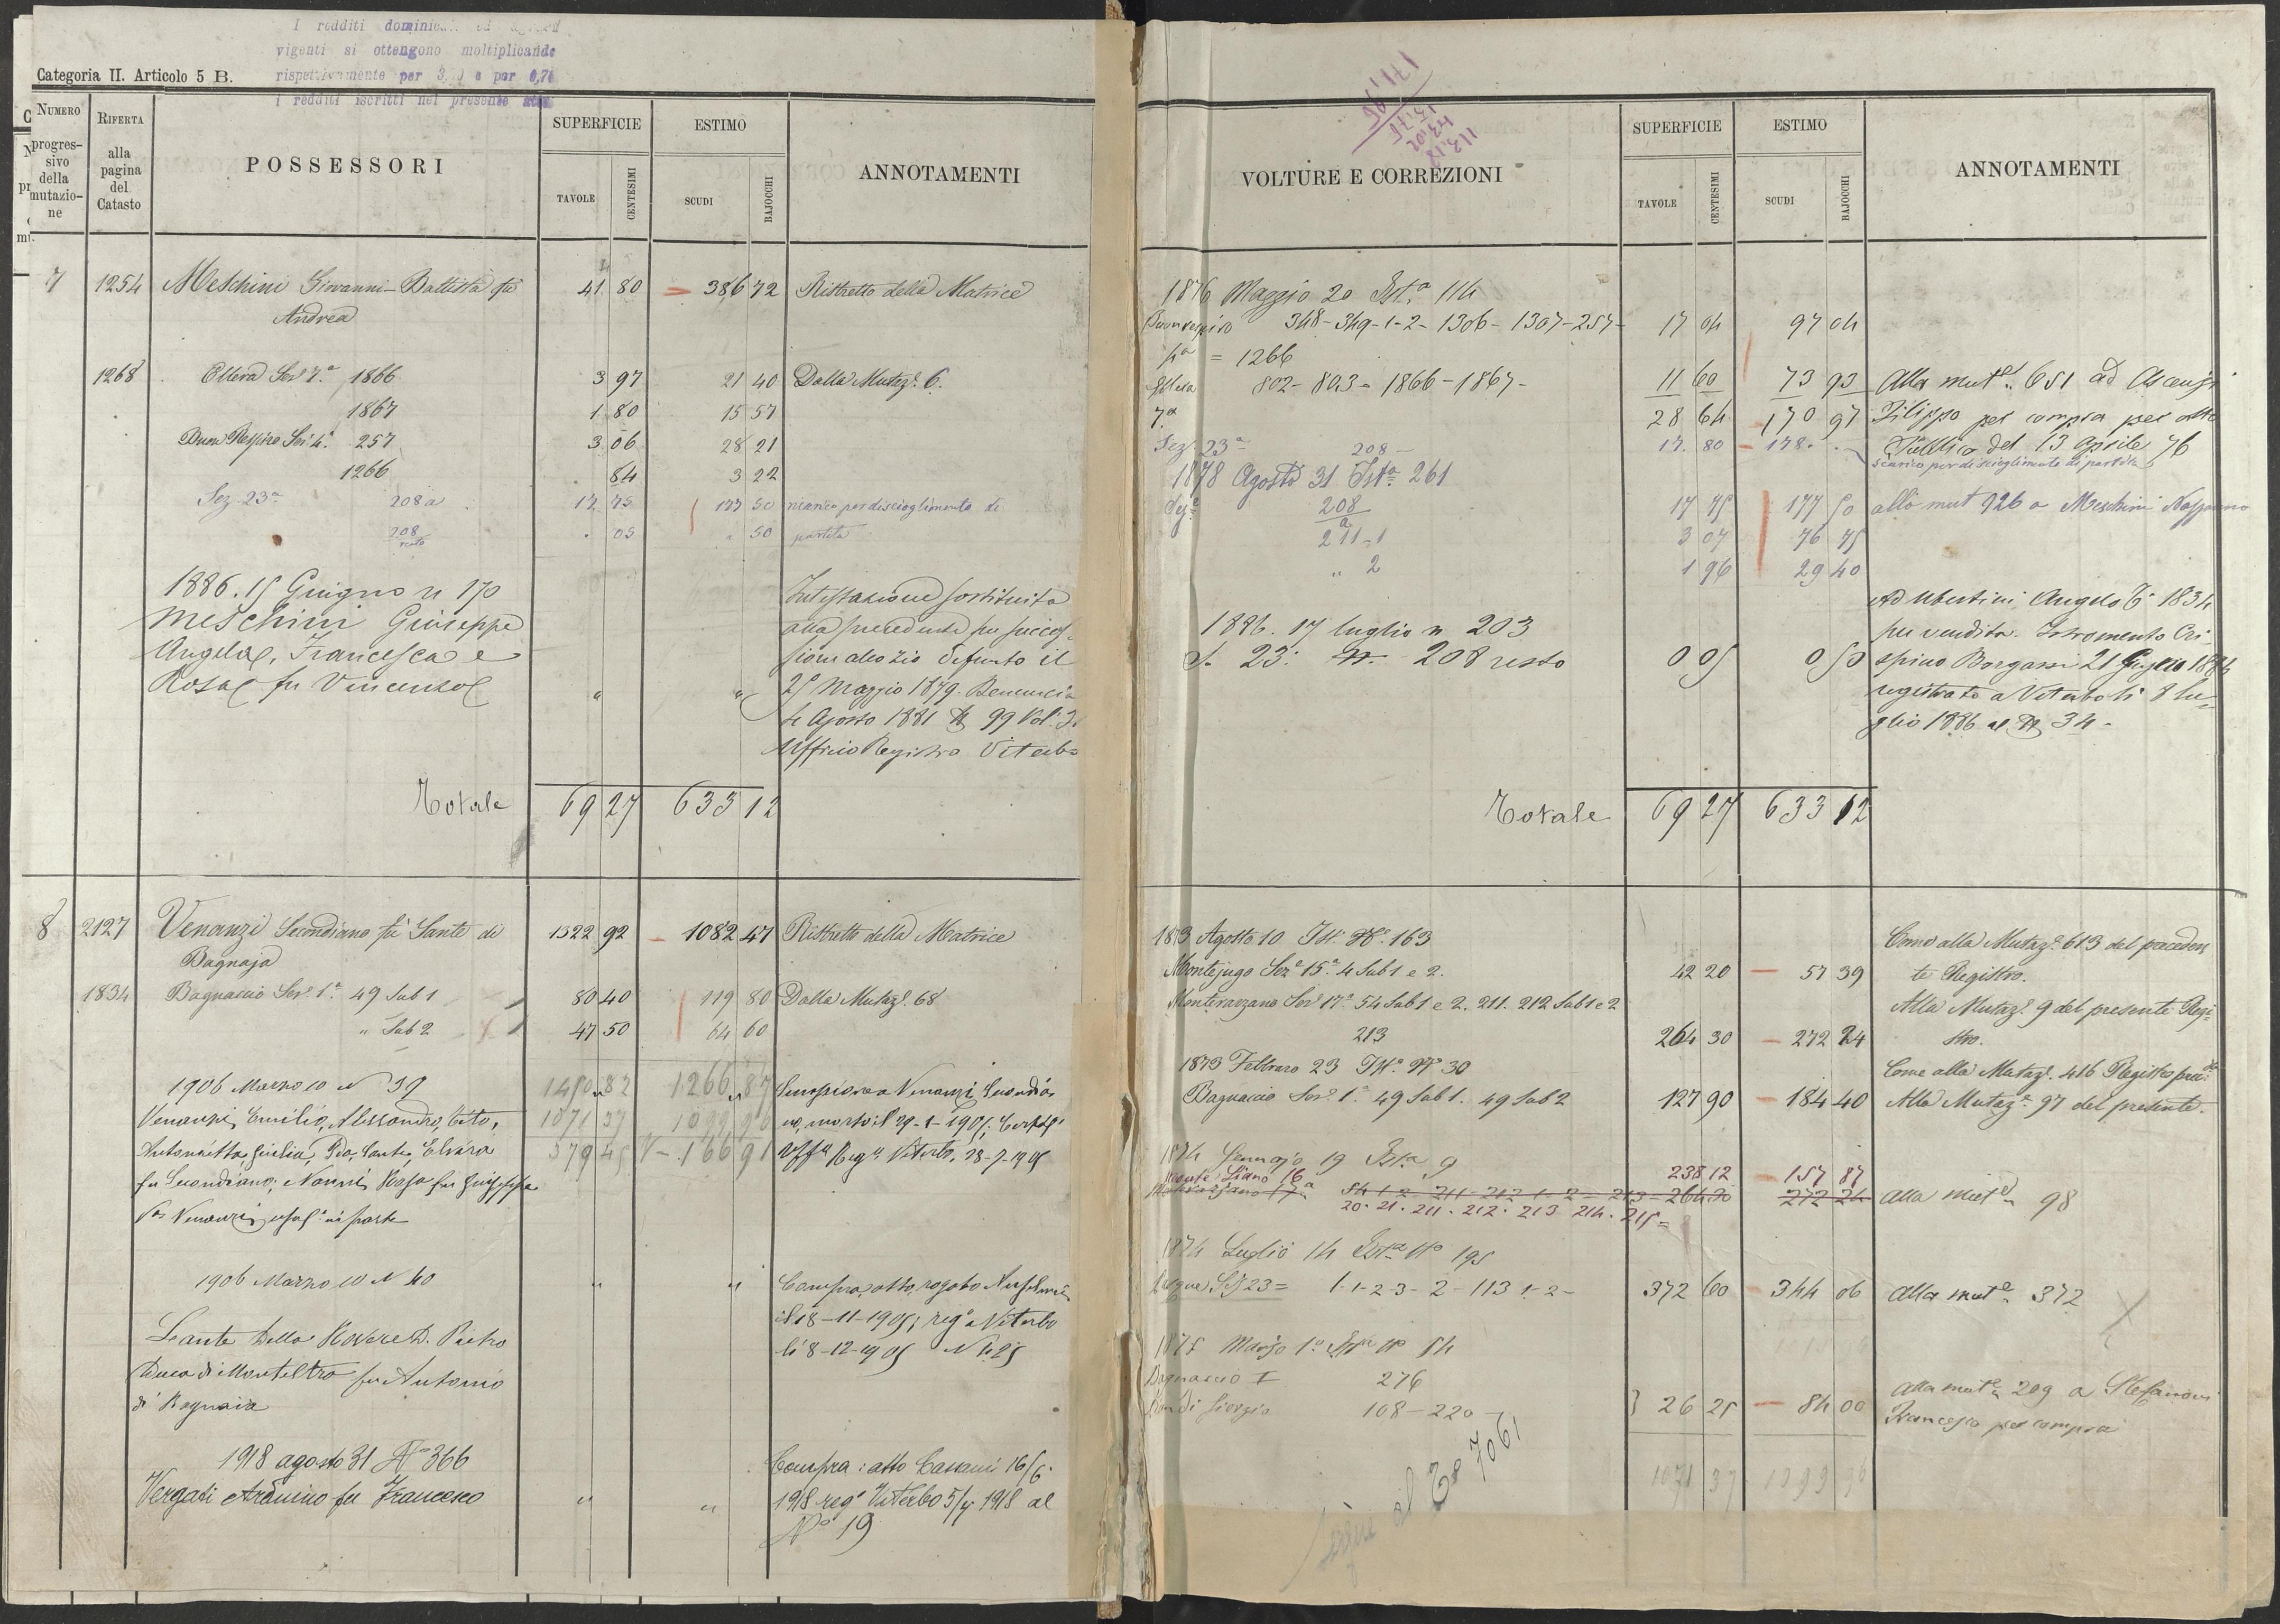 I redditi dominicali ed agrari
vigenti si ottengono moltiplicando
rispettivamente per 3,50 e per 0,70
i redditi iscritti nel presente
Categoria II. Articolo 5 B.
NUMERO progressivo della mutazione
RIFERTA alla pagina del Catasto
POSSESSORI
SUPERFICIE
TAVOLE CENTESIMI
ESTIMO
SCUDI BAJOCCHI
ANNOTAMENTI
7 1254 Meschini Giovanni-Battista fu 41 80 386 72 Ristretto della Matrice
Andrea
1268 Ellera Sez. 7.a 1866 3 97 21 40 Dalla Mutaz.e 6.
1867 1 80 15 57
Buon Respiro Sez. 4.a 257 3 06 28 21
1266 84 3 22
Sez. 23a 208a 17 75 177 50 per discioglimento di
208 resto 05 50 partita
1886. 15 Giugno n 170
Meschini Giuseppe
Angela, Francesca e
Rosa fu Vincenzo " "
Intestazione sostituita
alla precedente per succes-
sione allo zio defunto il
25 Maggio 1879. Denuncia
4 Agosto 1881 N 99 Vol.
Ufficio Registro Viterbo
Totale 69 27 633 12
8 2127 Venanzi Secondiano fu Sante di 1322 92 1082 47 Ristretto della Matrice
Bagnaja
1834 Bagnaccio Sez. 1.a 49 Sub 1 80 40 119 80 Dalla Mutaz.e 68
" Sub 2 47 50 64 60
1450 82 1266 87
1071 37 1099 96
379 45 166 91
1906 Marzo 10 N 39
Venanzi Emilio, Alessandro, Tito,
Antonietta, Giulia, Pio, Sante, Elvira
fu Secondiano; Nanni Rosa fu Giuseppe
Venanzi usuf. in parte
Successione a Venanzi Secondia-
no, morto il 29-1-1905;
Uff. Reg. Viterbo, 28-7-1905
1906 Marzo 10 N 40 " "
Lante Della Rovere D. Pietro
Duca di Monteltro fu Antonio
di Bagnaia
Compra, atto rogato
il 18-11-1905; reg.o Viterbo
li 8-12-1905 N 425
1918 agosto 31 No 366
Vergati Arduino fu Francesco " "
Compra: atto Bassani 16/6
1918 reg.o Viterbo 5/7 1918 al
No 19
171,96
VOLTURE E CORREZIONI
SUPERFICIE
TAVOLE CENTESIMI
ESTIMO
SCUDI BAJOCCHI
ANNOTAMENTI
1876 Maggio 20 Ist.a 114
Buonrespiro 348-349-1-2-1306-1307-257- 17 04 97 04
4a = 1266
Ellera 802-803-1866-1867- 11 60 73 93
7a 28 64 170 97
Alla mut.e 651 ad Ascenzi
Filippo per compra per atto
Pubblico del 13 Aprile 76
Sez 23a 208- 17. 80 178. scarico per discioglimento di partita
1878 Agosto 31 Ist.a 261
208 a 17 75 177 50 alla mut 926 a Meschini
211-1 3 07 76 75
" 2 1 96 29 40
1886. 17 luglio n 203
S. 23. 208 resto 0 05 0 50
Ad Ubertini Angelo To 1834
per vendita. Istromento Cri-
spino Borgassi 21 Giugno 1886
registrato a Viterbo li 8 lu-
glio 1886 al N 34-
Totale 69 27 633 12
1873 Agosto 10 Ist. No. 163
Montejugo Sez.e 15.a 4 Sub 1 e 2. 42 20 57 39
Come alla Mutaz.e 613 del preceden-
te Registro.
Monterazzano Sez. 17.a 54 Sub 1 e 2. 211. 212 Sub 1 e 2
213 264 30 272 24
Alla Mutaz.e 9 del presente Regi-
stro.
1873 Febbraro 23 Ist.a No 30
Bagnaccio Sez. 1.a 49 Sub 1. 49 Sub 2 127 90 184 40
Come alla Mutaz.e 416 Registro prec.
Alla Mutaz.e 97 del presente.
1874 Gennajo 19 Ist.a 9
Monte Liano 16 238 12 157 87
Monterazzano 17a 54 1-2-211-212 1-2-213 264 30 272 24 alla mut.e 98
20. 21. 211. 212. 213 214. 215=
1874 Luglio 14 Ist.a No 195
Sez 23= 1-1-2-3-2-113 1-2- 372 60 344 06 alla mut.e 372
1875 Marzo 1.o No 54
Bagnaccio I 276
108-220 26 25 84 00
alla mut.e 209 a Stefanoni
Francesco per compra
1071 37 1099 96
Segue al To 7061